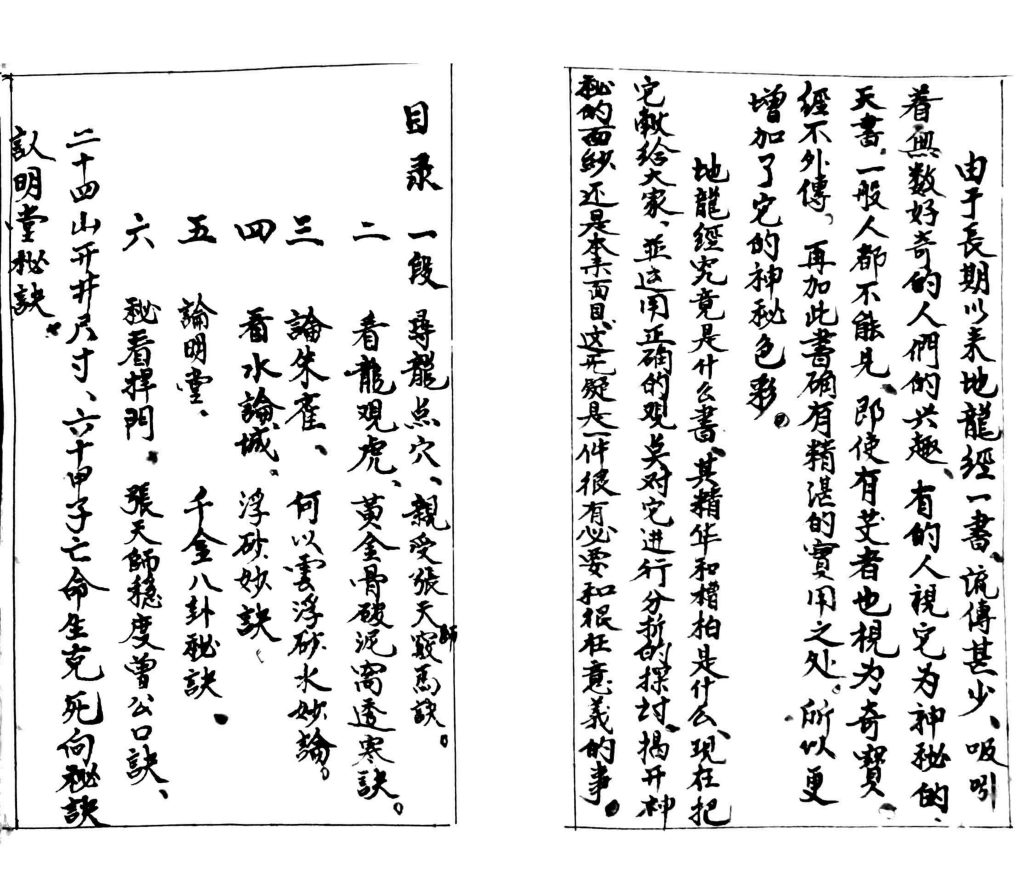 由于長期以来地龍經一書、流傳甚少、吸引
着無数好奇的人們的兴趣、有的人視它为神秘的、
天書、一般人都不能見、即使有芰者也視为奇寶、
經不外傳、再加此書确有精湛的實用之处、所以更
增加了它的神秘色彩。
地龍經究竟是什么書、其精华和糟柏是什么、現在把
它献给大家、並运用正确的观点对它进行分折的探讨、揭开神
秘的面紗还是本来面目、这无疑是一件很有必要和很在意義的事。
目录 一段 尋龍点穴、親受張天師竅馬訣。
二 看龍观虎、黃金骨破泥窩透寒訣。
三 論朱雀、何以雲浮砂水妙論。
四 看水論城、浮砂妙訣
五 論明堂、千金八卦秘訣、
六 秘看捍門、張天師穏度曾公口訣、
二十四山开井尺寸、六十甲子亡命生克死向秘訣
認明堂秘訣、